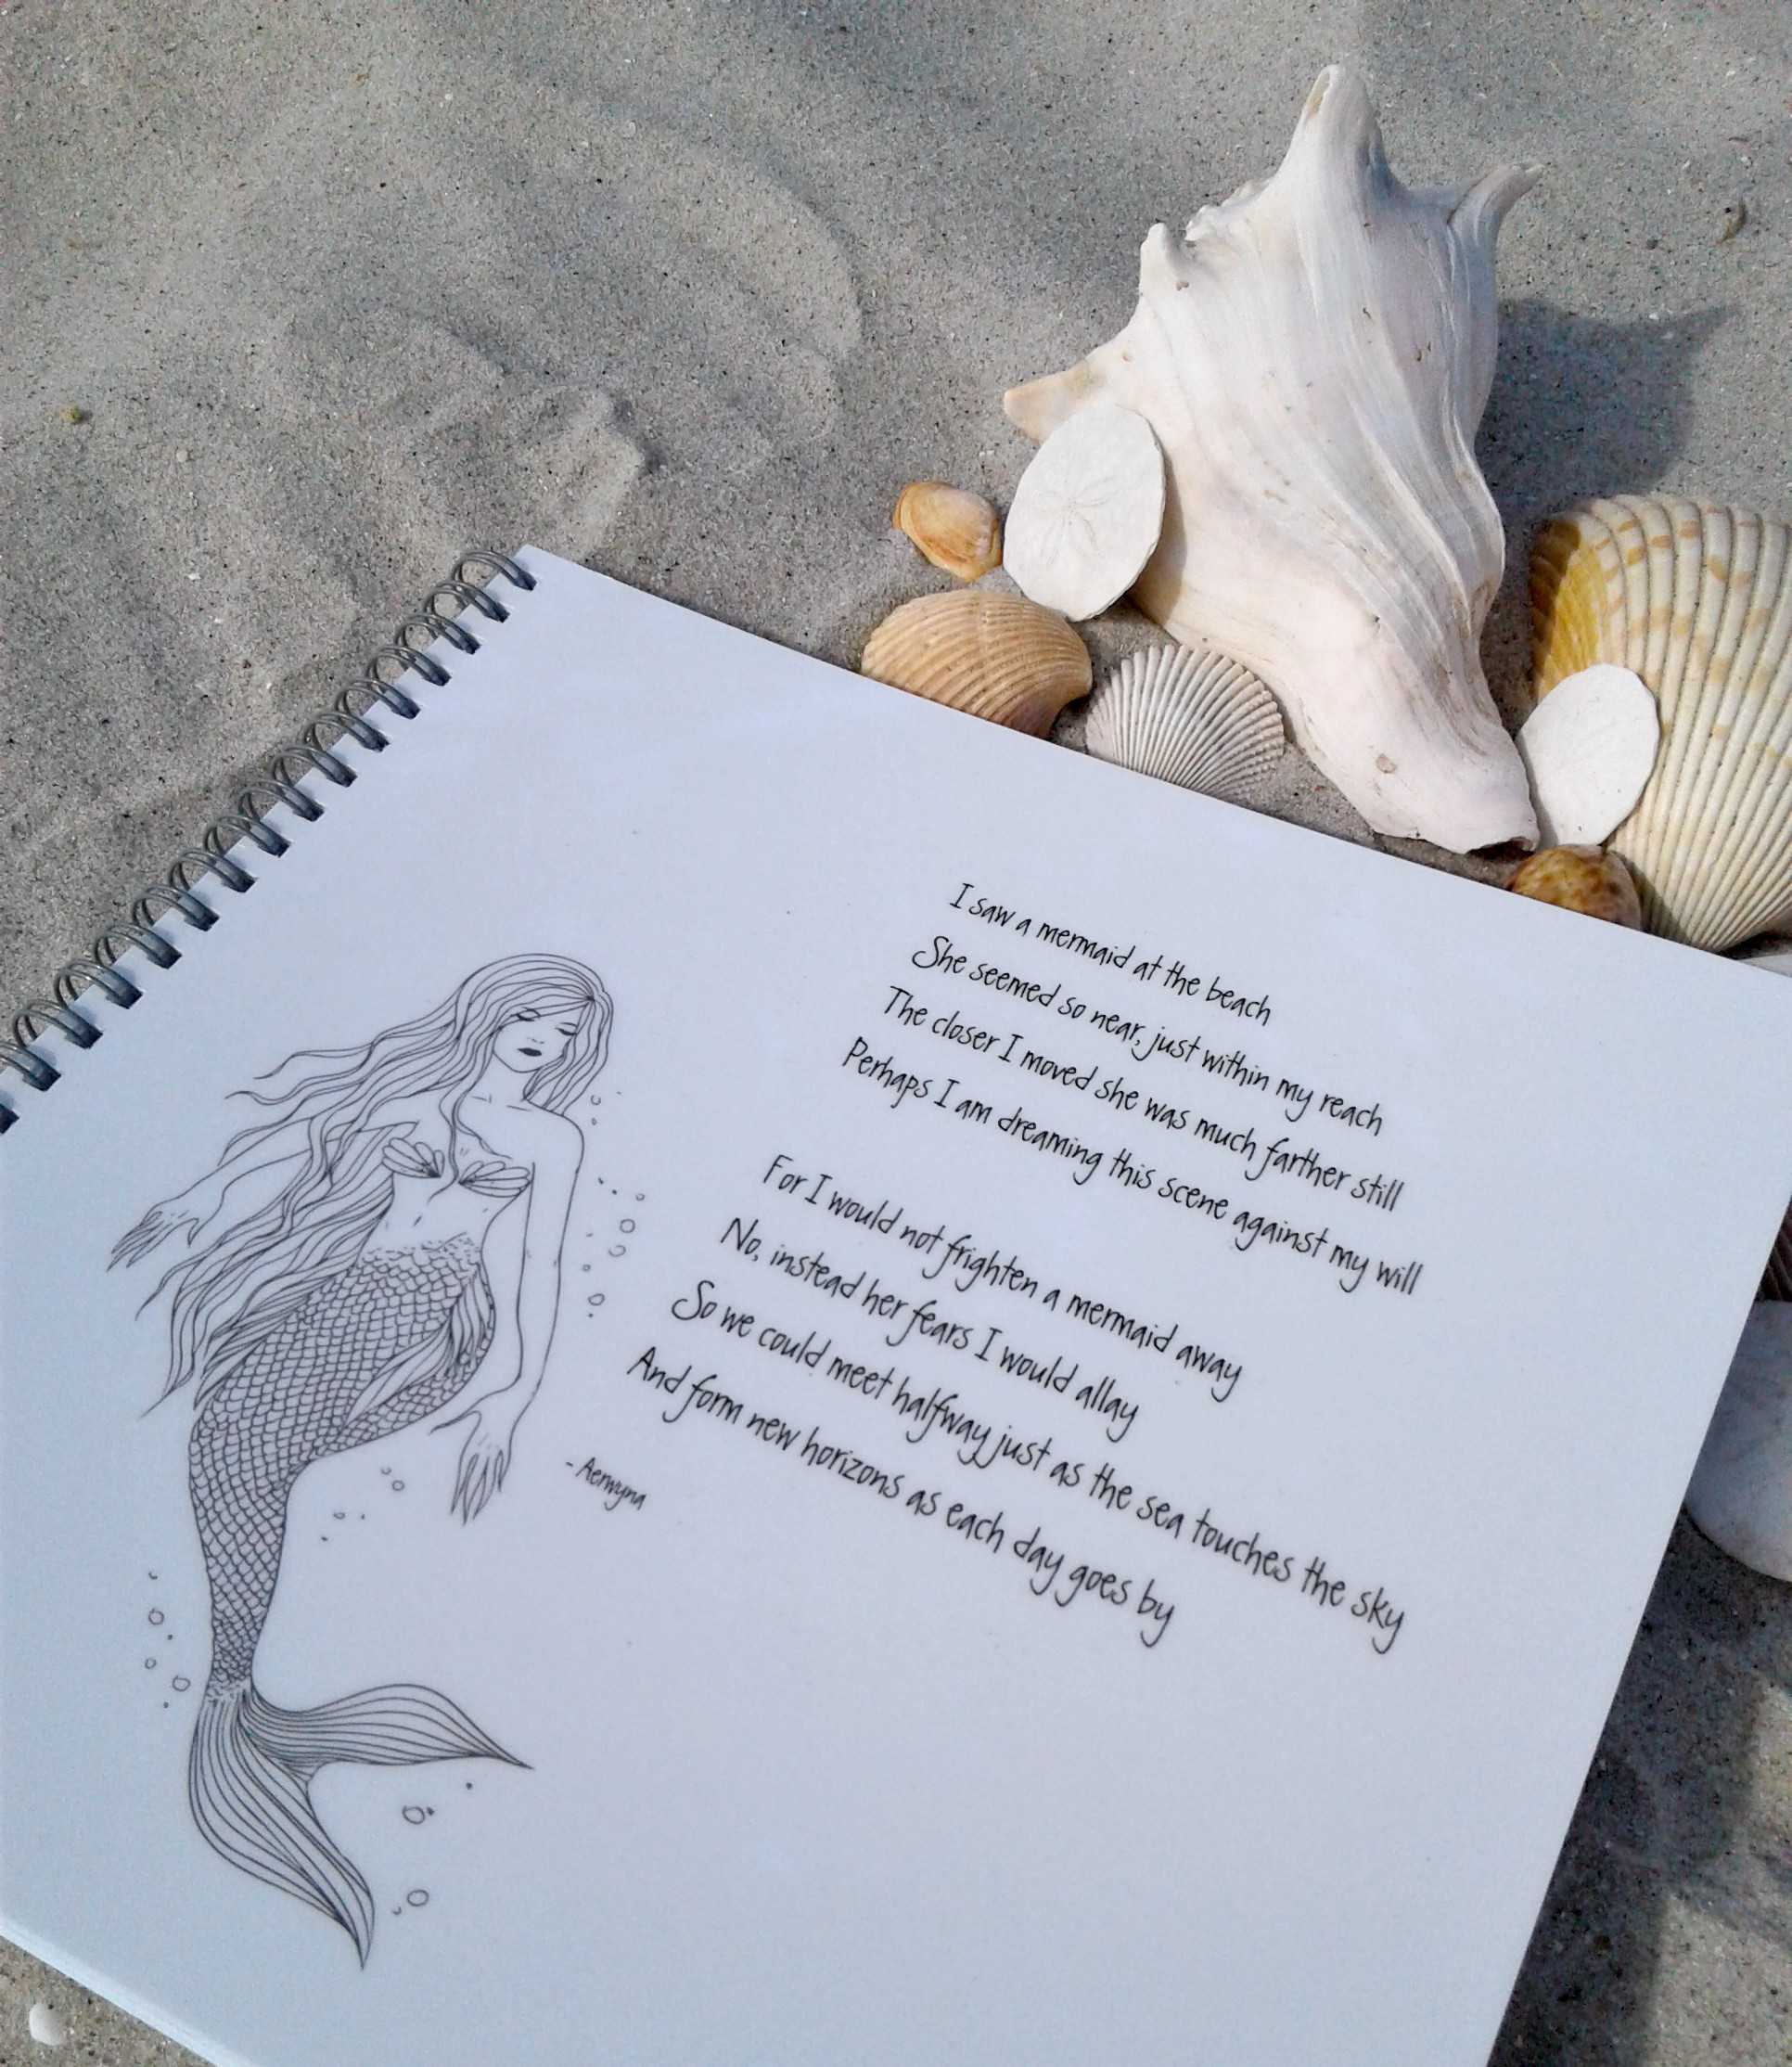 I saw a mermaid at the beach
She seemed so near, just within my reach
The closer I moved she was much farther still
Perhaps I am dreaming this scene against my will
For I would not frighten a mermaid away
No, instead her fears I would allay
So we could meet halfway just as the sea touches the sky
And form new horizons as each day goes by
- Aerwyna